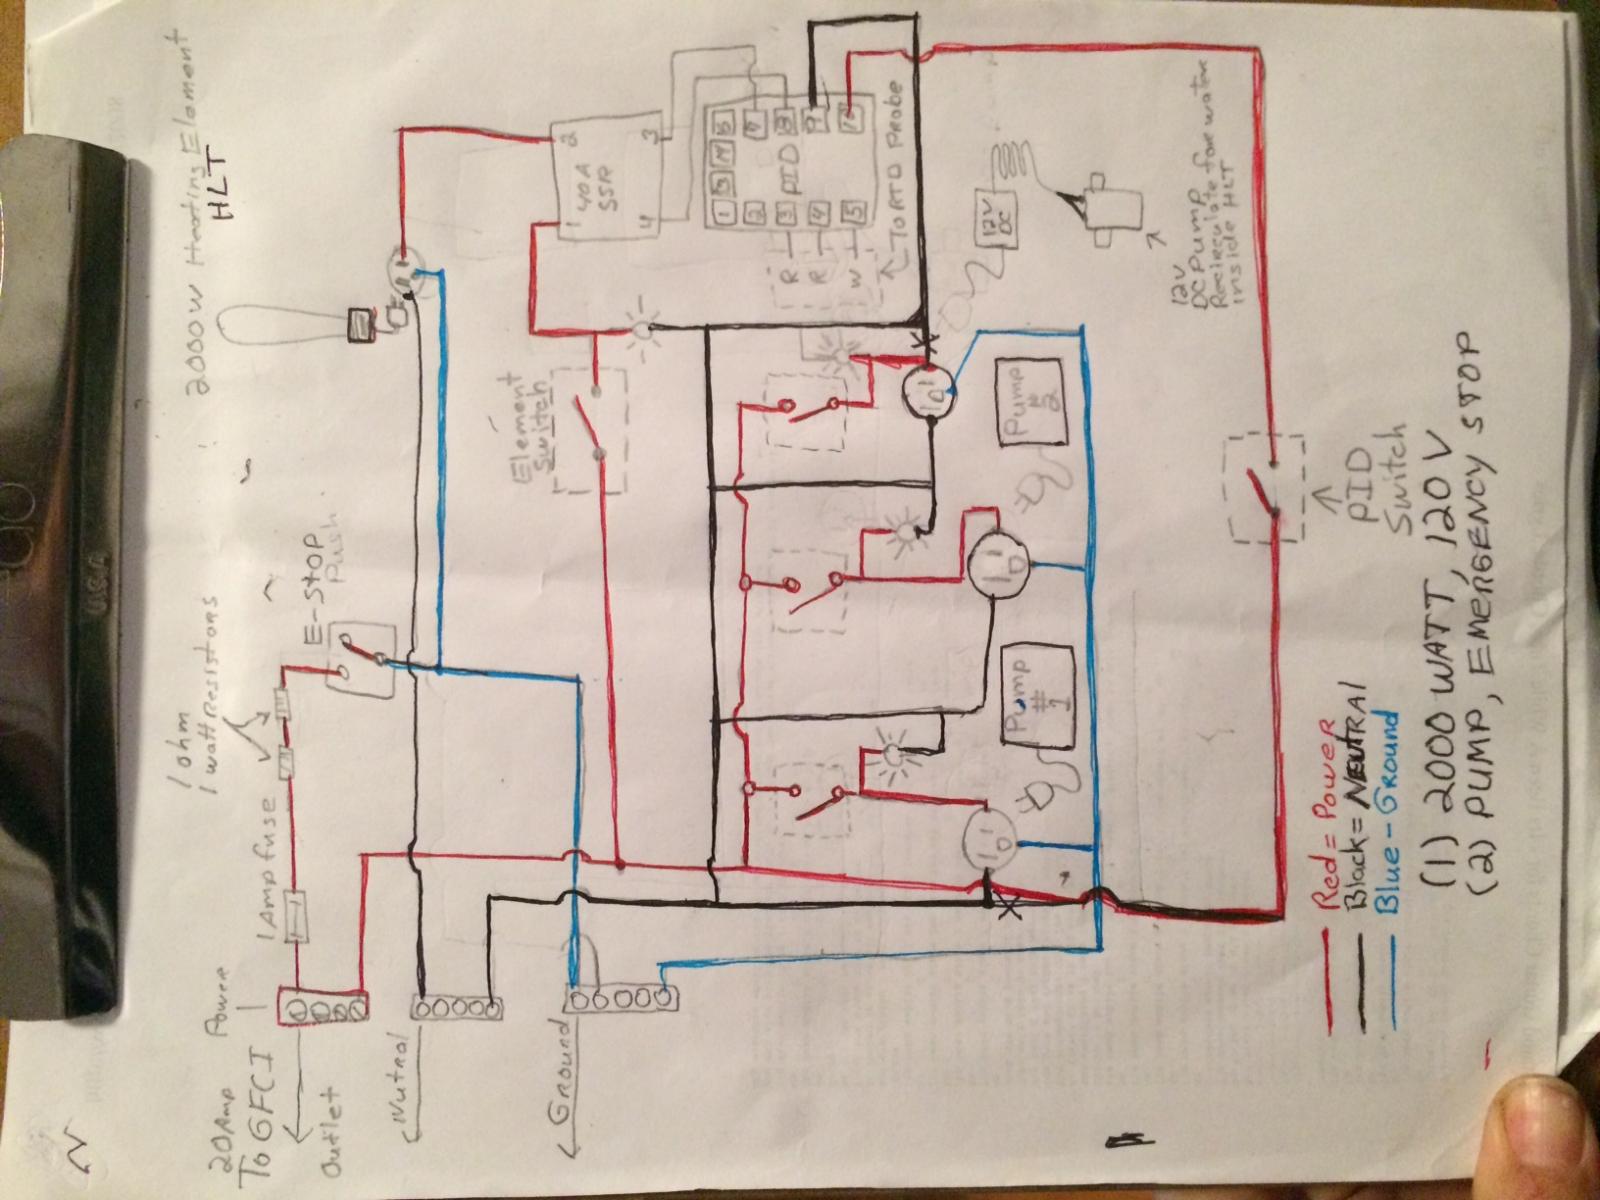 2000W Heating Element
HLT
1 ohm
1 watt resistors
E-STOP
Push
1 Amp fuse
Power
20Amp
To GFCI
Outlet
Nutral
Ground
Element
Switch
40A
SSR
1
2
3
4
PID
1
2
3
4
5
7
8
9
10
R
R
W
To RTD PRobe
12V
DC
12V
DC Pump
Recirculate for water
inside HLT
Pump
#2
Pump
#
1
PID
Switch
Red = Power
Black = NEUTRAl
Blue - Ground
(1) 2000 WATT, 120V
(2) PUMP, EMERGENCY STOP
U.S.A.